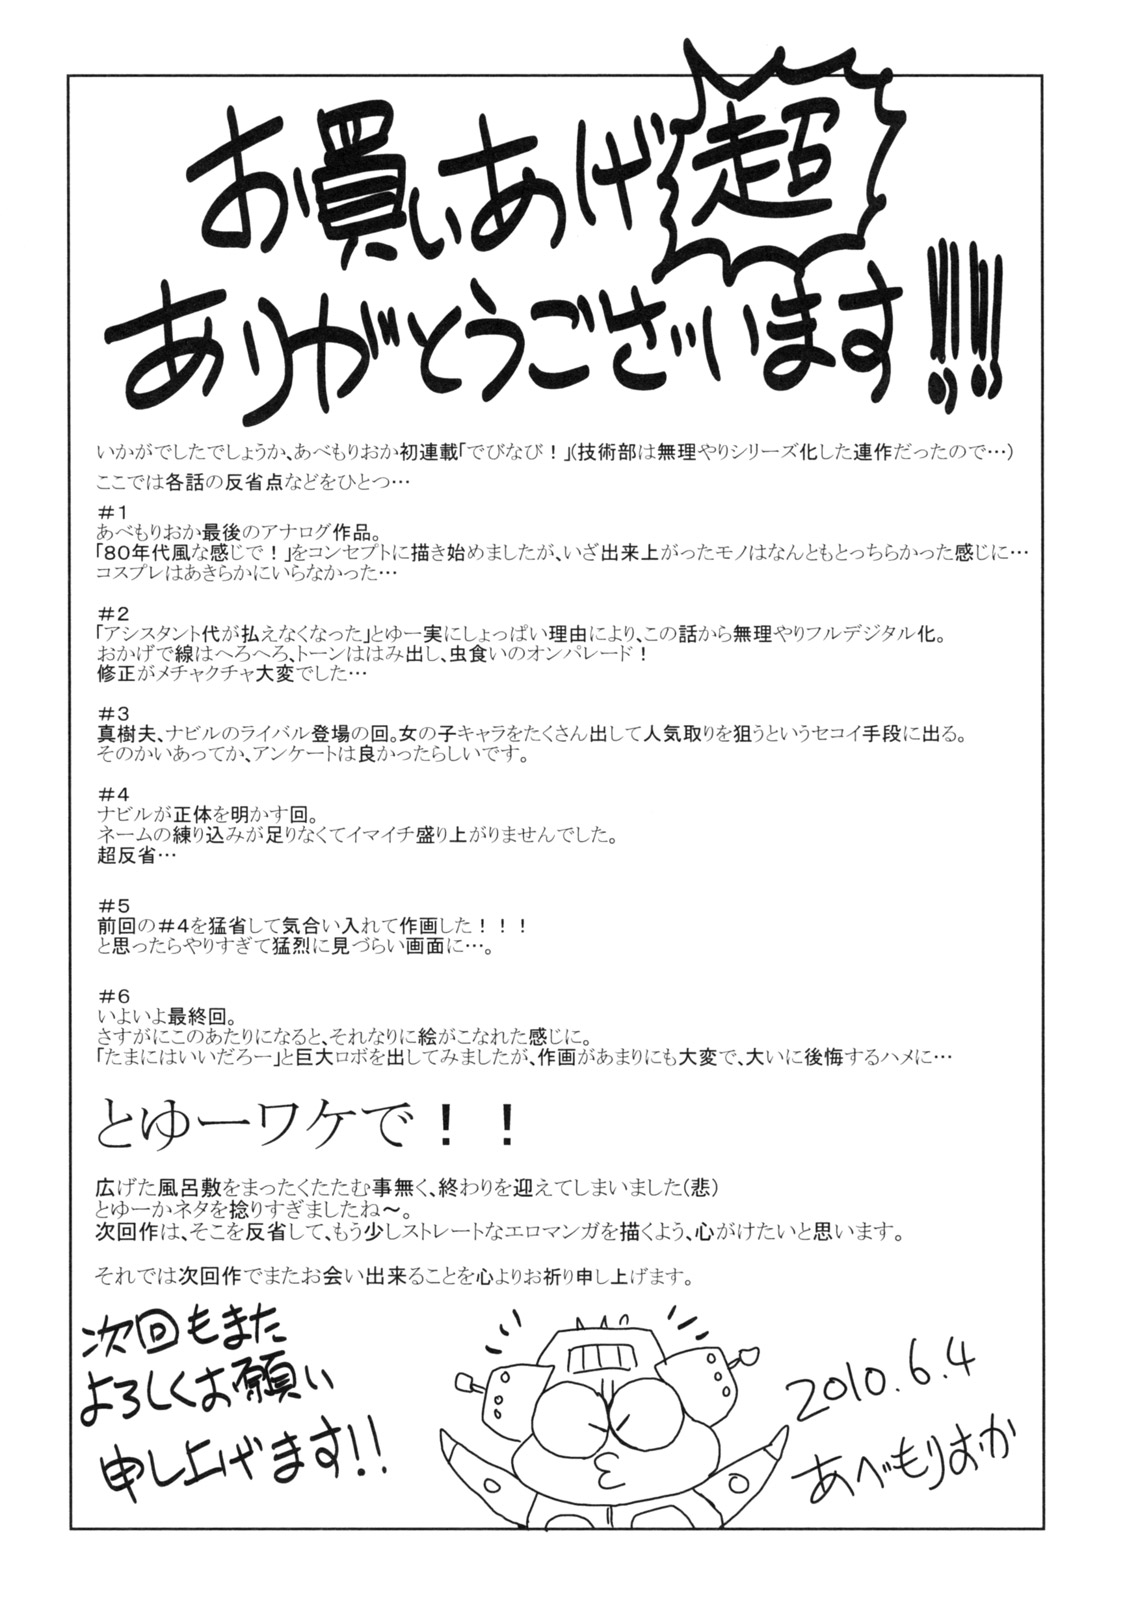 お買いあげ超
ありがとうございます!!!!
いかがでしたでしょうか、あべもりおか初連載「でびなび！」(技術部は無理やりシリーズ化した連作だったので…)
ここでは各話の反省点などをひとつ…
＃1
あべもりおか最後のアナログ作品。
「80年代風な感じで！」をコンセプトに描き始めましたが、いざ出来上がったモノはなんともとっちらかった感じに…
コスプレはあきらかにいらなかった…
＃2
「アシスタント代が払えなくなった」とゆー実にしょっぱい理由により、この話から無理やりフルデジタル化。
おかげで線はへろへろ、トーンははみ出し、虫食いのオンパレード！
修正がメチャクチャ大変でした…
＃3
真樹夫、ナビルのライバル登場の回。女の子キャラをたくさん出して人気取りを狙うというセコイ手段に出る。
そのかいあってか、アンケートは良かったらしいです。
＃4
ナビルが正体を明かす回。
ネームの練り込みが足りなくてイマイチ盛り上がりませんでした。
超反省…
＃5
前回の＃4を猛省して気合い入れて作画した！！！
と思ったらやりすぎて猛烈に見づらい画面に…。
＃6
いよいよ最終回。
さすがにこのあたりになると、それなりに絵がこなれた感じに。
「たまにはいいだろー」と巨大ロボを出してみましたが、作画があまりにも大変で、大いに後悔するハメに…
とゆーワケで！！
広げた風呂敷をまったくたたむ事無く、終わりを迎えてしまいました(悲)
とゆーかネタを捻りすぎましたね～。
次回作は、そこを反省して、もう少しストレートなエロマンガを描くよう、心がけたいと思います。
それでは次回作でまたお会い出来ることを心よりお祈り申し上げます。
次回もまた
よろしくお願い
申し上げます!!
2010.6.4
あべもりおか